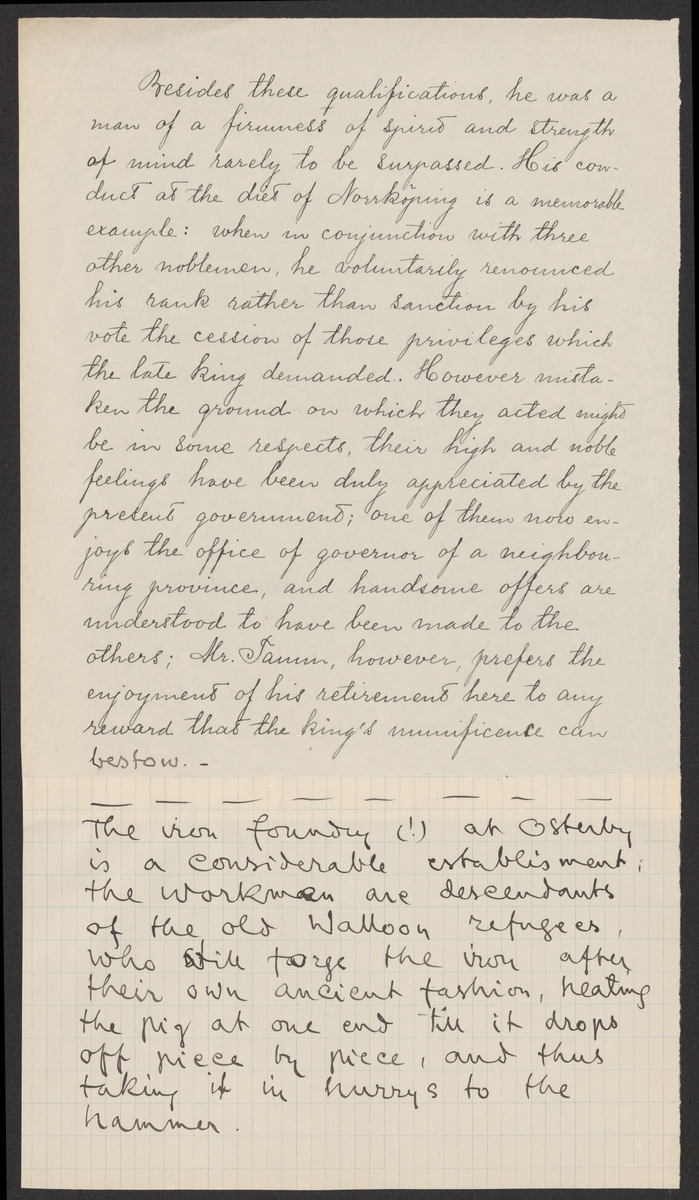 Besides these qualifications, he was a
man of a firmness of spirit and strength
of mind rarely to be surpassed. His con-
duct at the diet of Norrköping is a memorable
example: when in conjunction with three
other noblemen, he voluntarily renounced
his rank rather than sanction by his
vote the cession of those privileges which
the late king demanded. However mista-
ken the ground on which they acted might
be in some respects, their high and noble
feelings have been duly appreciated by the
present government; one of them now en-
joys the office of governor of a neighbou-
ring province, and handsome offers are
understood to have been made to the
others; Mr. Tamm, however, prefers the
enjoyment of his retirement here to any
reward that the king's munificence can
bestow. -
The iron foundry (!) at Osterby
is a considerable establisment;
the workmen are descendants
of the old Walloon refugees,
who still forge the iron after
their own ancient fashion, heating
the pig at one end till it drops
off piece by piece, and thus
taking it in hurrys to the
hammer.